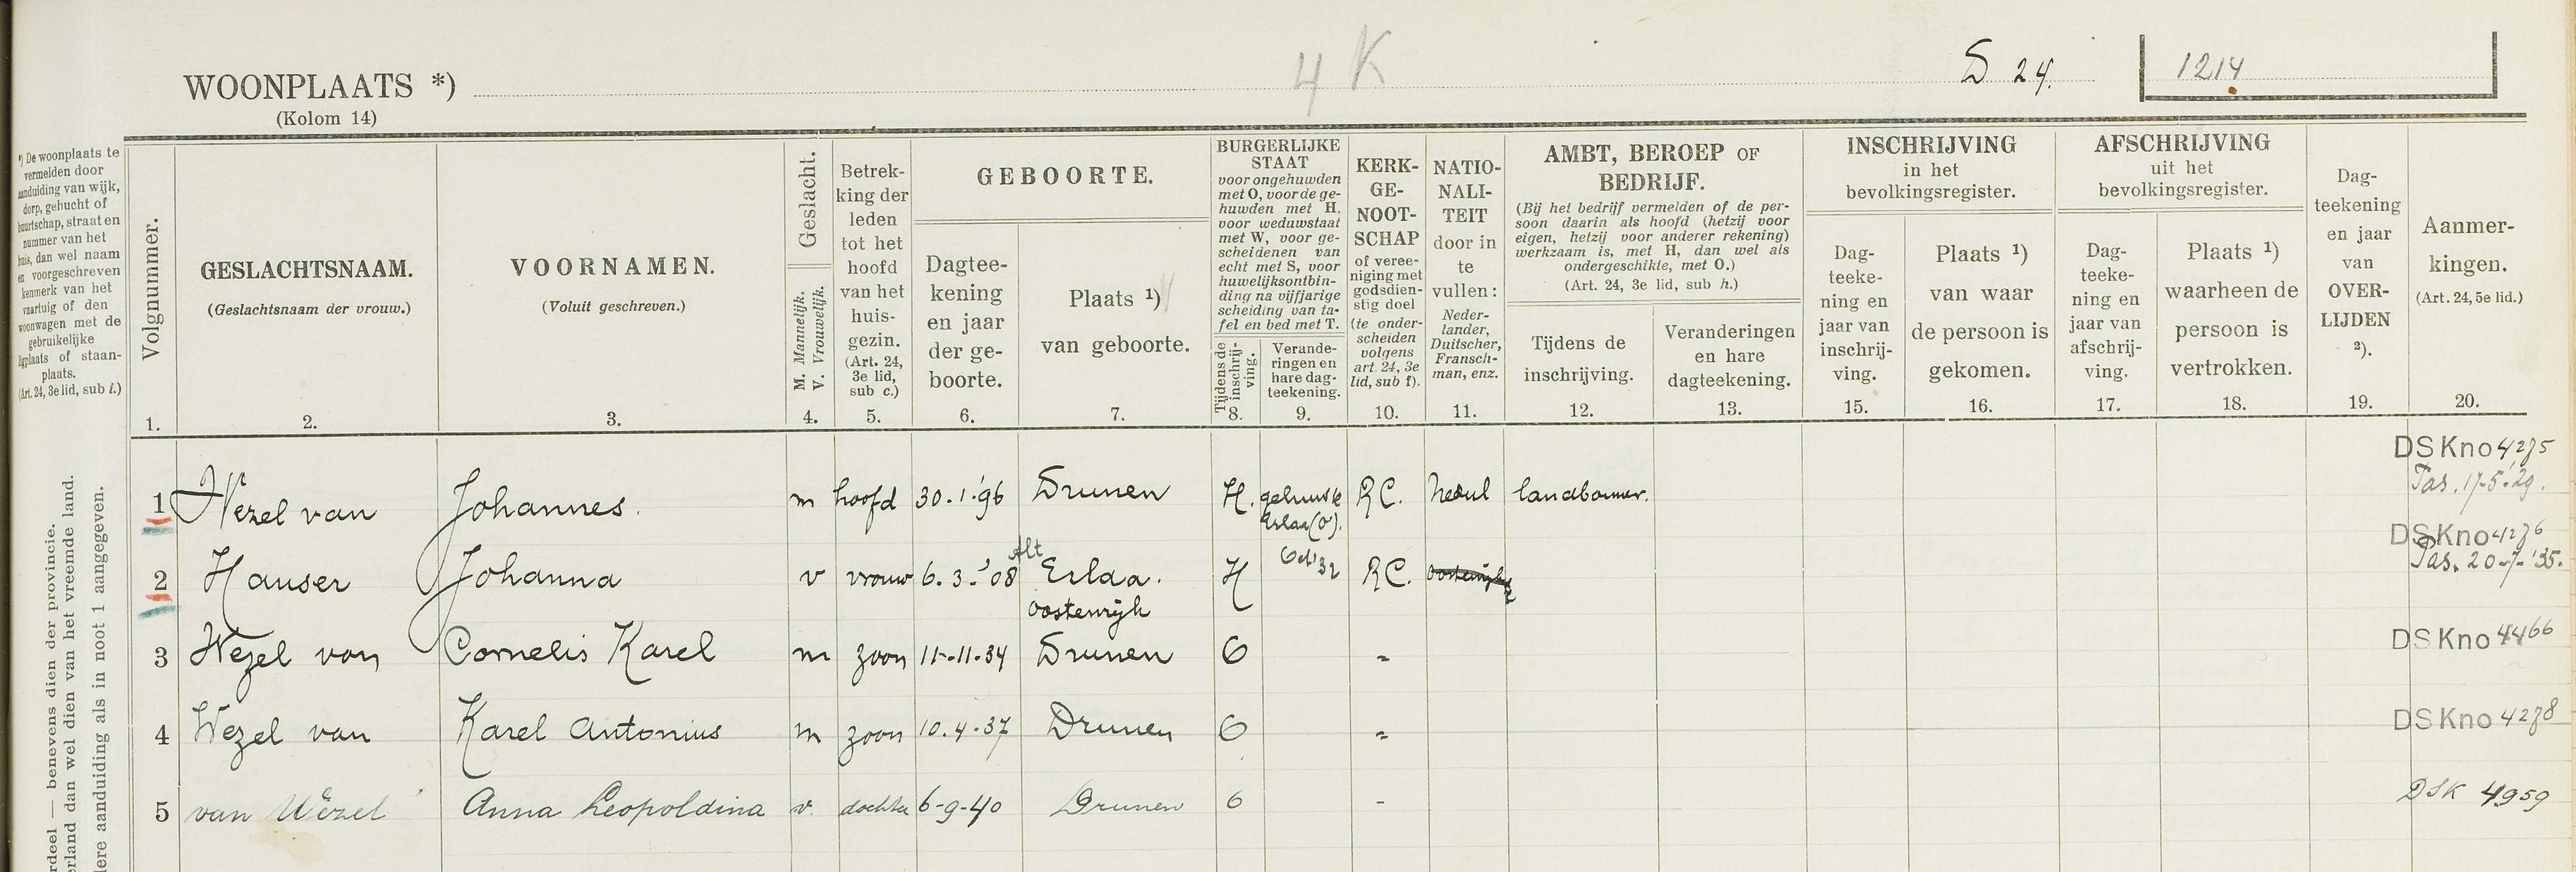 WOONPLAATS *)
(Kolom 14)
4 K
D 24.
1214
*) De woonplaats te
vermelden door
aanduiding van wijk,
dorp, gehucht of
buurtschap, straat en
nummer van het
huis, dan wel naam
en voorgeschreven
kenmerk van het
vaartuig of den
woonwagen met de
gebruikelijke
ligplaats of staan-
plaats.
(Art. 24, 3e lid, sub i.)
rdeel — benevens dien der provincie.
erland dan wel dien van het vreemde land.
dere aanduiding als in noot 1 aangegeven.
Volgnummer.
1.
GESLACHTSNAAM.
(Geslachtsnaam der vrouw.)
2.
VOORNAMEN.
(Voluit geschreven.)
3.
Geslacht.
M. Mannelijk.
V. Vrouwelijk.
4.
Betrek-
king der
leden
tot het
hoofd
van het
huis-
gezin.
(Art. 24,
3e lid,
sub c.)
5.
GEBOORTE.
Dagtee-
kening
en jaar
der ge-
boorte.
6.
Plaats ¹)
van geboorte.
7.
BURGERLIJKE
STAAT
voor ongehuwden
met O, voor de ge-
huwden met H,
voor weduwstaat
met W, voor ge-
scheidenen van
echt met S, voor
huwelijksontbin-
ding na vijfjarige
scheiding van ta-
fel en bed met T.
Tijdens de
inschrij-
ving.
8.
Verande-
ringen en
hare dag-
teekening.
9.
KERK-
GE-
NOOT-
SCHAP
of veree-
niging met
godsdien-
stig doel
(te onder-
scheiden
volgens
art. 24, 3e
lid, sub f).
10.
NATIO-
NALI-
TEIT
door in
te
vullen:
Neder-
lander,
Duitscher,
Fransch-
man, enz.
11.
AMBT, BEROEP OF
BEDRIJF.
(Bij het bedrijf vermelden of de per-
soon daarin als hoofd (hetzij voor
eigen, hetzij voor anderer rekening)
werkzaam is, met H, dan wel als
ondergeschikte, met O.)
(Art. 24, 3e lid, sub h.)
Tijdens de
inschrijving.
12.
Veranderingen
en hare
dagteekening.
13.
INSCHRIJVING
in het
bevolkingsregister.
Dag-
teeke-
ning en
jaar van
inschrij-
ving.
15.
Plaats ¹)
van waar
de persoon is
gekomen.
16.
AFSCHRIJVING
uit het
bevolkingsregister.
Dag-
teeke-
ning en
jaar van
afschrij-
ving.
17.
Plaats ¹)
waarheen de
persoon is
vertrokken.
18.
Dag-
teekening
en jaar
van
OVER-
LIJDEN
²).
19.
Aanmer-
kingen.
(Art. 24, 5e lid.)
20.
DSKno 4275
1 Wezel van Johannes. m hoofd 30.1.'96 Drunen H. R.C. landbouwer. Pas. 17-5-'29.
Erlaa (O).
DSKno 4276
2 Hauser Johanna v vrouw 6.3-'08 Alt Erlaa. H Oct '32 R.C. Pas. 20-7-'35.
oostenrijk
3 Wezel van Cornelis Karel m zoon 11-11-34 Drunen O " DSKno 4466
4 Wezel van Karel Antonius m zoon 10.4.37 Drunen O " DSKno 4278
5 van Wezel Anna Leopoldina v. dochter 6-9-40 Drunen O - DSK 4959